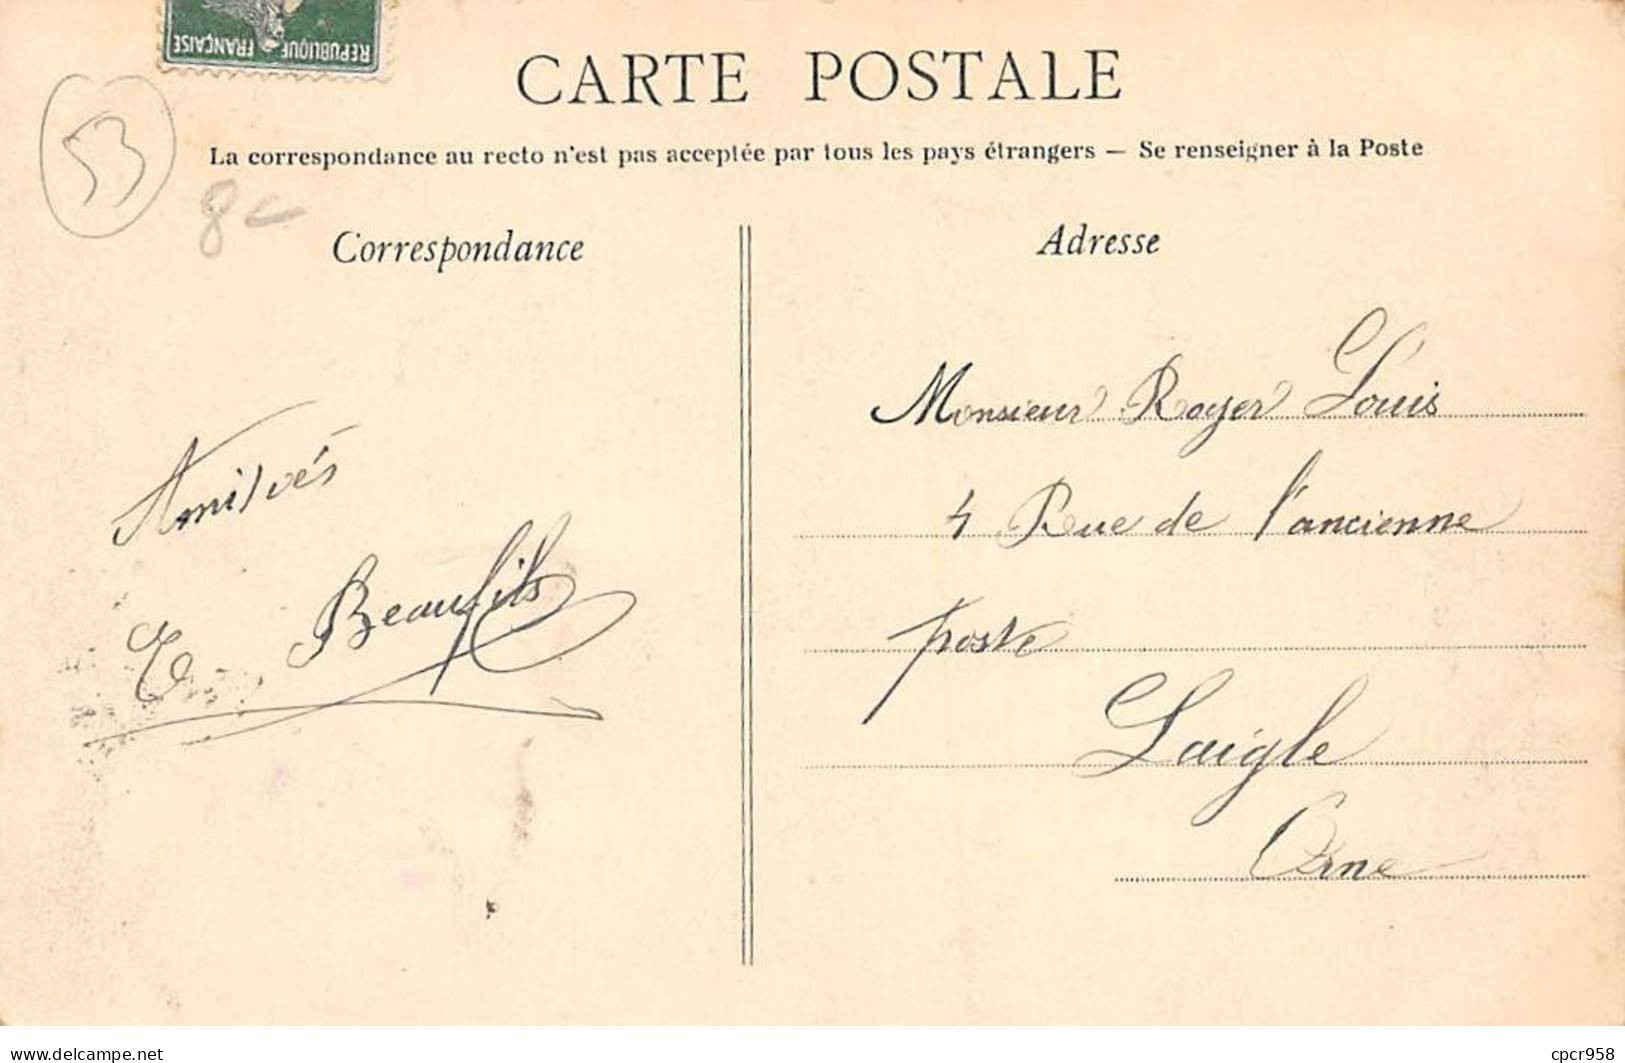 REPUBLIQUE FRANÇAISE
CARTE POSTALE
La correspondance au recto n'est pas acceptée par tous les pays étrangers — Se renseigner à la Poste
53
8
Correspondance
Adresse
Monsieur Royer Louis
4 Rue de l'ancienne
poste
Laigle
Orne
Amitiés
E. Beaufils
www.delcampe.net
cpcr958